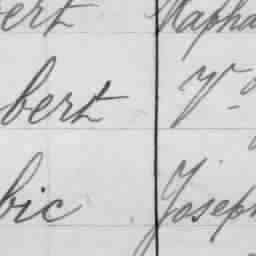 ert Rapha
bert Vº
bic Joseph